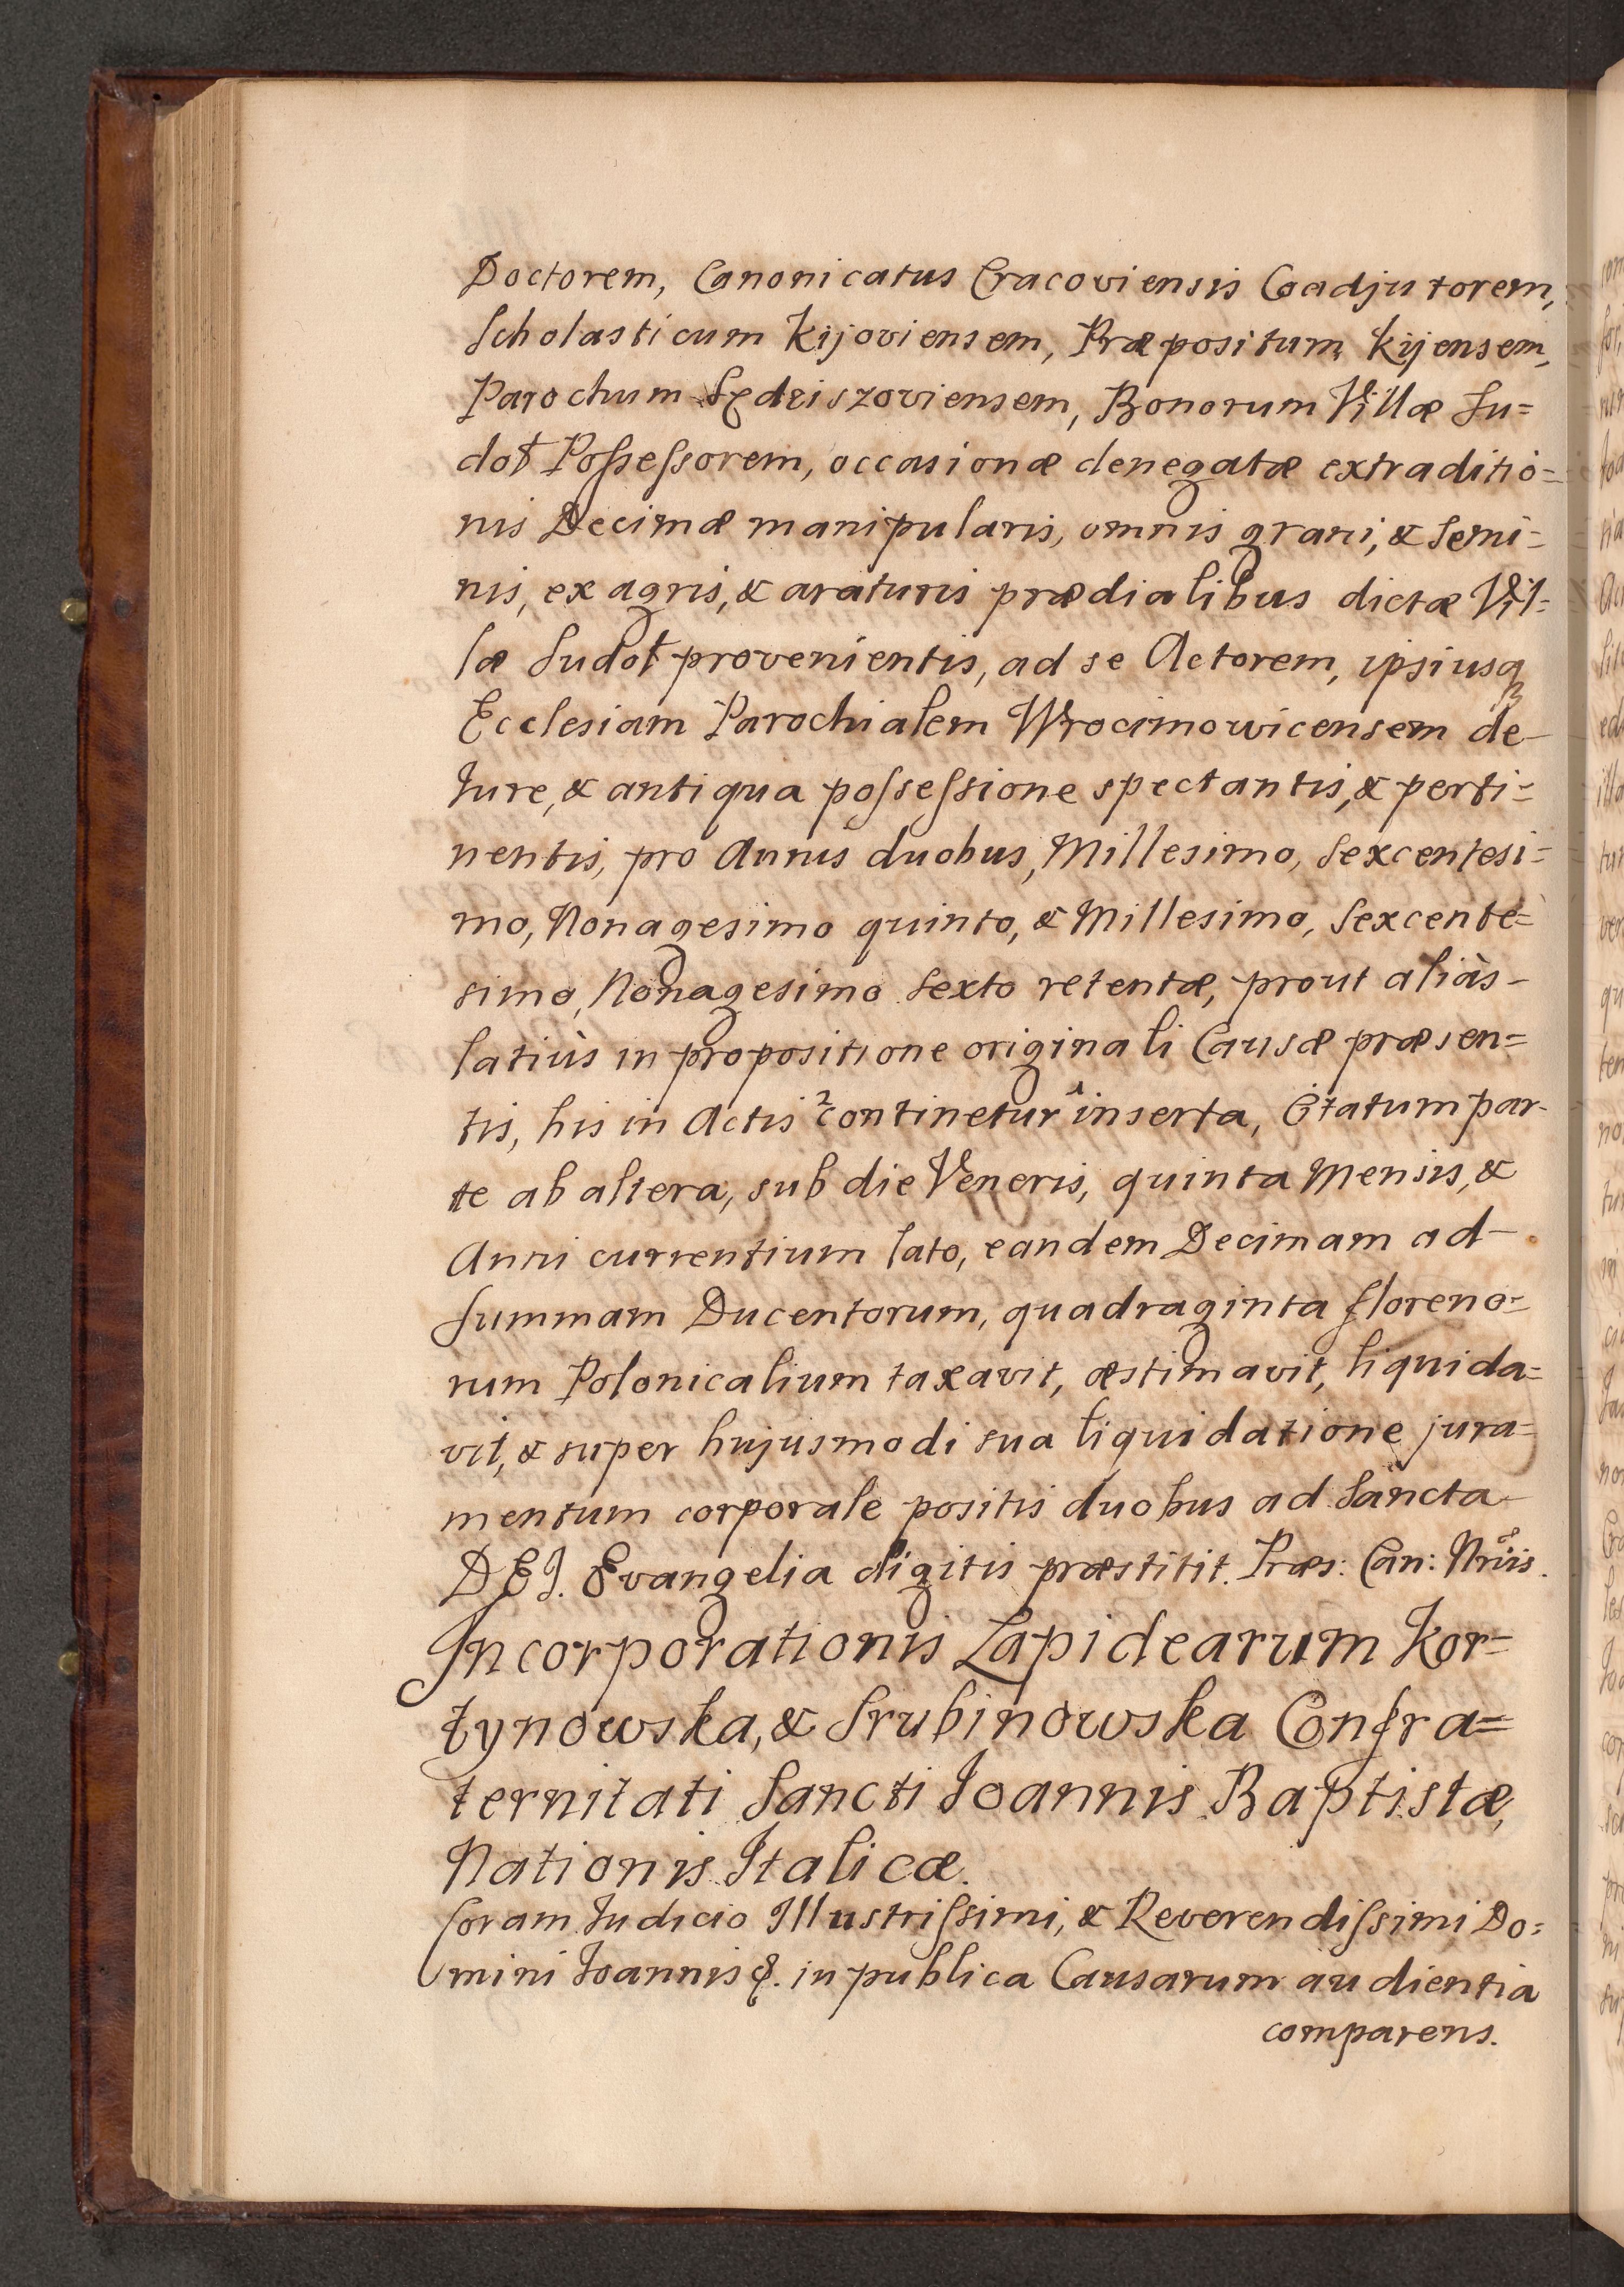 Doctorem, Canonicatus Cracoviensis Coadjutorem,
Scholasticum Kijoviensem, Præpositum Kijensem,
Parochum Sędziszoviensem, Bonorum Villæ Su=
doł Poſseſsorem, occasionæ denegatæ extraditio=
nis Decimæ manipularis, omnis grani, & Semi=
nis, ex agris, & araturis prædialibus dictæ Vil=
læ Sudoł provenientis, ad se Actorem, ipsiusq₃
Ecclesiam Parochialem Wrocimowicensem de
Iure, & antiqua poſseſsione spectantis, & perti=
nentis, pro Annis duobus, Millesimo, Sexcentesi=
mo, Nonagesimo quinto, & Millesimo, Sexcente=
simo, Nonagesimo Sexto retentæ, prout aliàs
latiùs in propositione originali Causæ præsen=
tis, his in Actis ²continetur ¹inserta, Citatum par-
te ab altera, sub die Veneris, quinta Mensis, &
Anni currentium lato, eandem Decimam ad
Summam Ducentorum, quadraginta floreno=
rum Polonicalium taxavit, æstimavit, liquida=
vit, & super hujusmodi sua liquidatione jura=
mentum corporale positis duobus ad Sancta
DEI. Evangelia digitis præstitit. Præs: Can: Nrii̇s.
Incorporationis Lapidearum Kor=
tynowska, & Srubinowska Confra=
ternitati Sancti Ioannis Baptistæ,
Nationis Italicæ.
Coram Iudicio Illustriſsimi, & Reverendiſsimi Do=
mini Ioannis &. in publica Causarum audientia
comparens.